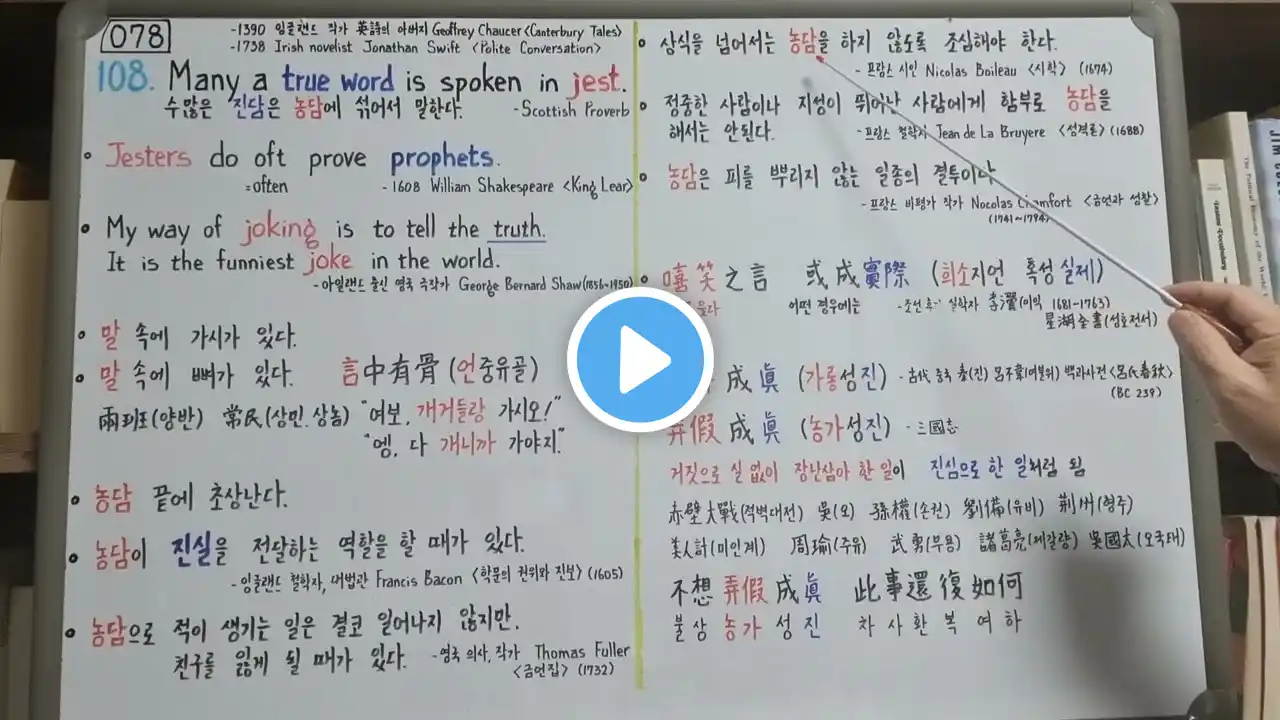 078
-1390 잉글랜드 작가 英詩의 아버지 Geoffrey Chaucer <Canterbury Tales>
-1738 Irish novelist Jonathan Swift <Polite Conversation>
108. Many a true word is spoken in jest.
수많은 진담은 농담에 섞어서 말한다. - Scottish Proverb
• Jesters do oft prove prophets.
=often - 1608 William Shakespeare <King Lear>
• My way of joking is to tell the truth.
It is the funniest joke in the world.
- 아일랜드 출신 영국 극작가 George Bernard Shaw (1856-1950)
• 말 속에 가시가 있다.
• 말 속에 뼈가 있다. 言中有骨 (언중유골)
兩班(양반) 常民(상민, 상놈) "여보, 개거들랑 가시오!"
"엥, 다 개니까 가야지."
• 농담 끝에 초상난다.
• 농담이 진실을 전달하는 역할을 할 때가 있다.
- 잉글랜드 철학자, 대법관 Francis Bacon <학문의 권위와 진보> (1605)
• 농담으로 적이 생기는 일은 결코 일어나지 않지만.
친구를 잃게 될 때가 있다. - 영국 의사, 작가 Thomas Fuller
<금언집> (1732)
• 상식을 넘어서는 농담을 하지 않도록 조심해야 한다.
- 프랑스 시인 Nicolas Boileau <시학> (1674)
• 정중한 사람이나 지성이 뛰어난 사람에게 함부로 농담을
해서는 안된다. - 프랑스 철학자 Jean de La Bruyere <성격론> (1688)
• 농담은 피를 뿌리지 않는 일종의 결투이다
- 프랑스 비평가 작가 Nocolas Chamfort <금언과 성찰>
(1741~1794)
嘻笑之言 或成實際 (희소지언 혹성실제)
어떤 경우에는 - 조선 실학자 李瀷(이익 1681-1763)
星湖全書(성호전서)
成眞 (가롱성진) - 古代 중국 秦(진) 呂不韋(여불위) 백과사전 <呂氏春秋>
(BC 239)
弄假成眞 (농가성진) - 三國志
거짓으로 실 없이 장난삼아 한 일이 진심으로 한 일처럼 됨
赤壁大戰(적벽대전) 吳(오) 孫權(손권) 劉備(유비) 荊州(형주)
美人計(미인계) 周瑜(주유) 武勇(무용) 諸葛亮(제갈량) 吳國太(오국태)
不想弄假成眞 此事還復如何
불상농가성진 차사환복여하